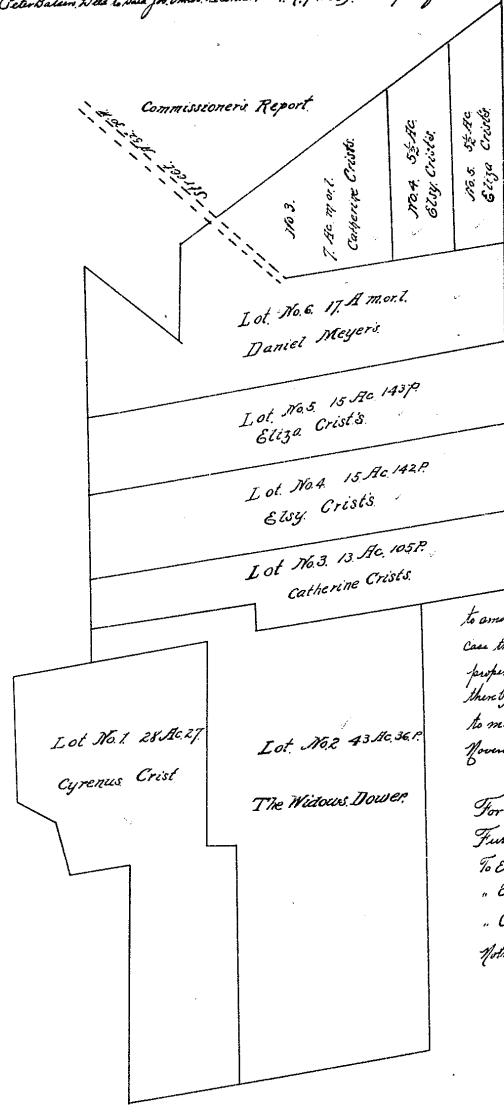 Peter Balsers, Deed to said Jos.
Commissioner's Report.
Street. N 52° 30' W
No 3.
7. Ac. m.or.l.
Catherine Crists.
No. 4. 5½ Ac.
Elsy Crists.
No. 5. 5½ Ac.
Eliza Crists.
Lot. No. 6. 17. A m.or.l.
Daniel Meyers.
Lot. No. 5. 15 Ac. 143 P.
Eliza. Crist's.
Lot. No. 4. 15 Ac. 142 P.
Elsy. Crists.
Lot No. 3. 13. Ac. 105 P.
Catherine Crists.
Lot No. 1. 28 Ac. 27.
Cyrenus Crist
Lot. No. 2 43 Ac. 36. P.
The Widows. Dower.
case
to
For
To
"
"